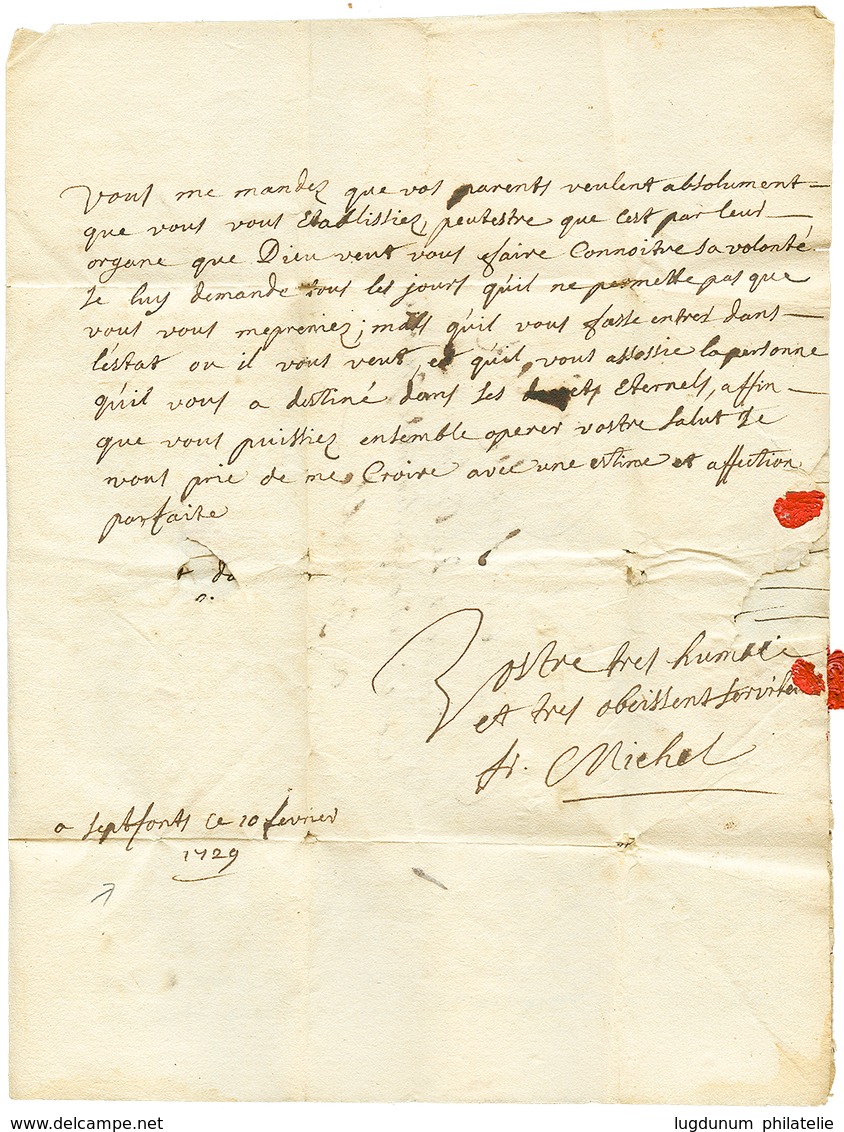 Vous me mandez que vos parents veulent absolument
que vous vous Etablissiez, peutestre que c'est par leur
organe que Dieu veut vous faire Connoitre sa volonté.
Je luy demande tous les jours qu'il ne permette pas que
vous vous mepreniez; mais qu'il vous fasse entrer dans
l'éstat ou il vous veut, et qu'il vous assossie la personne
qu'il vous a destiné dans ses decrets Eternels, affin
que vous puissiez ensemble operer vostre salut Je
vous prie de me Croire avec une estime et affection
parfaite
Vostre tres humble
et tres obeissent serviteur
fr. Michel
a Septfonts ce 10 fevrier
1729
www.delcampe.net
lugdunum philatelie